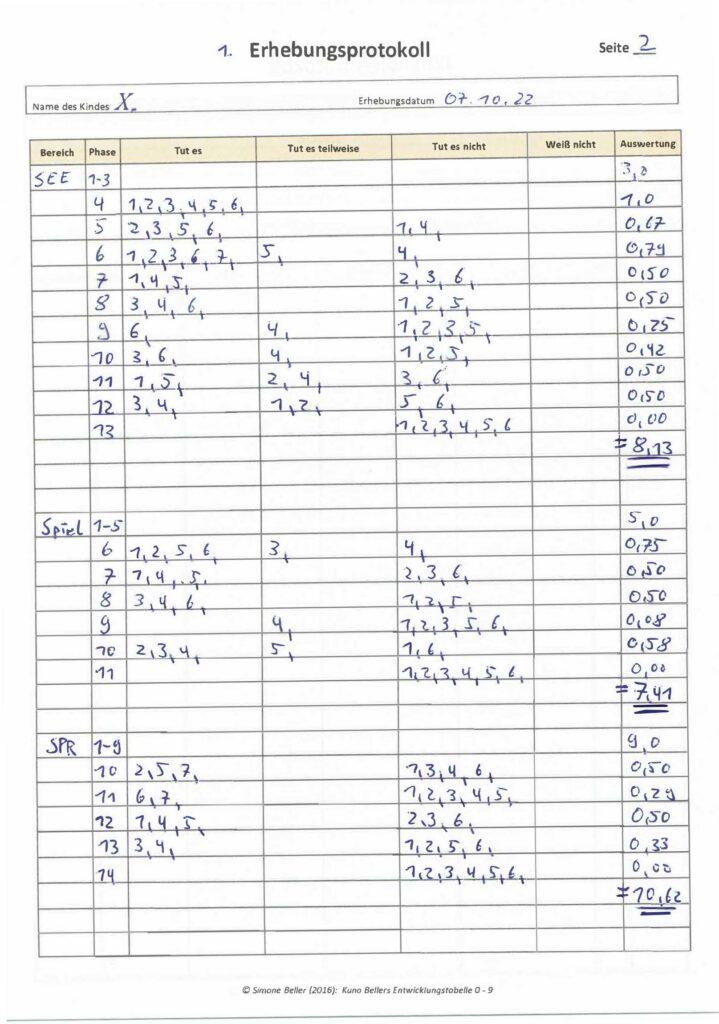 1. Erhebungsprotokoll Seite 2
Name des Kindes X. Erhebungsdatum 07.10.22
Bereich Phase Tut es Tut es teilweise Tut es nicht Weiß nicht Auswertung
SEE 1-3 3,0
4 1, 2, 3, 4, 5, 6, 1,0
5 2, 3, 5, 6, 1, 4, 0,67
6 1, 2, 3, 6, 7, 5, 4, 0,79
7 1, 4, 5, 2, 3, 6, 0,50
8 3, 4, 6, 1, 2, 5, 0,50
9 6, 4, 1, 2, 3, 5, 0,25
10 3, 6, 4, 1, 2, 5, 0,42
11 1, 5, 2, 4, 3, 6, 0,50
12 3, 4, 1, 2, 5, 6, 0,50
13 1, 2, 3, 4, 5, 6 0,00
= 8,13
Spiel 1-5 5,0
6 1, 2, 5, 6, 3, 4, 0,75
7 1, 4, 5, 2, 3, 6, 0,50
8 3, 4, 6, 1, 2, 5, 0,50
9 4, 1, 2, 3, 5, 6, 0,08
10 2, 3, 4, 5, 1, 6, 0,58
11 1, 2, 3, 4, 5, 6, 0,00
= 7,41
SPR 1-9 9,0
10 2, 5, 7, 1, 3, 4, 6, 0,50
11 6, 7, 1, 2, 3, 4, 5, 0,29
12 1, 4, 5, 2, 3, 6, 0,50
13 3, 4, 1, 2, 5, 6, 0,33
14 1, 2, 3, 4, 5, 6, 0,00
= 10,62
© Simone Beller (2016): Kuno Bellers Entwicklungstabelle 0 - 9